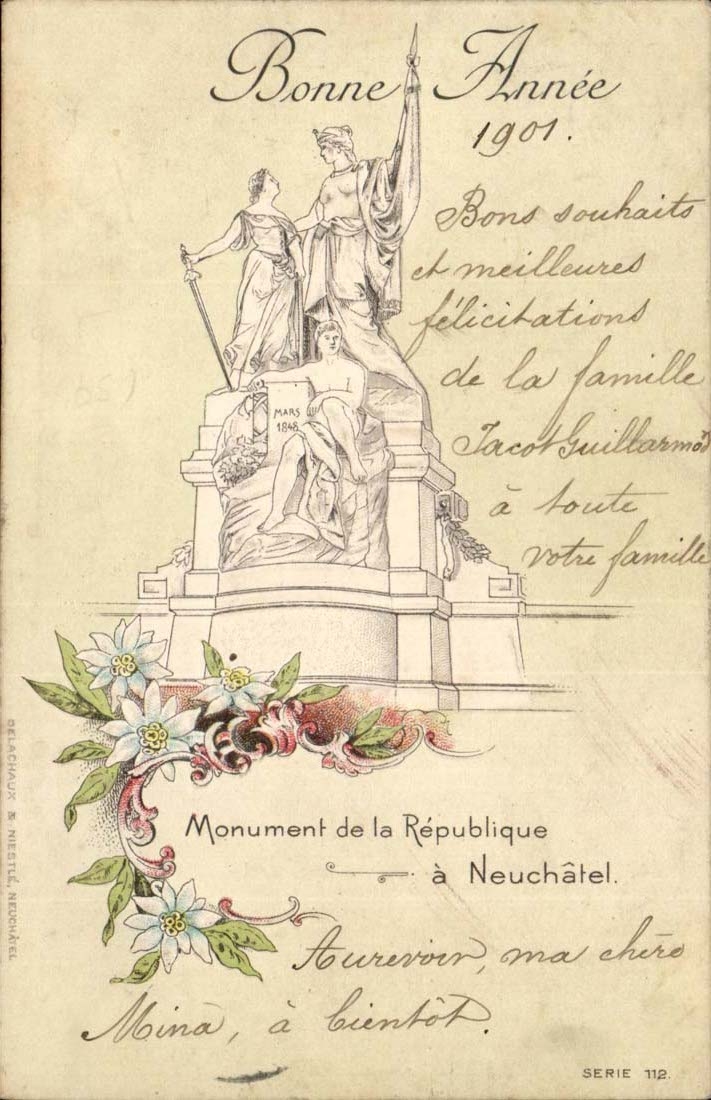 Bonne Année
1901.
Bons souhaits
et meilleures
félicitations
de la famille
Jacot Guillarmod
à toute
votre famille
MARS
1848
Monument de la République
à Neuchâtel.
Aurevoir, ma chère
Mina, à bientôt.
DELACHAUX & NIESTLÉ, NEUCHÂTEL
SERIE 112.